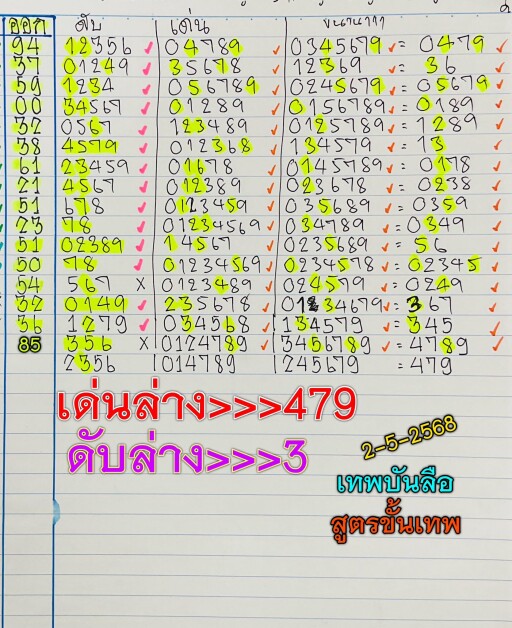 ออก ดับ เด่น
94 12356 04789 0345679 = 0479
37 01249 35678 12369 = 36
59 1234 056789 0245679 = 05679
00 34567 01289 0156789 = 0189
32 0567 123489 0125789 = 1289
38 4579 012368 134579 = 13
61 23459 01678 0145789 = 0178
21 4567 012389 023678 = 0238
51 678 0123459 035689 = 0359
23 78 01234569 034789 = 0349
51 02389 14567 0235689 = 56
50 78 01234569 0234578 = 02345
54 567 x 0123489 024579 = 0249
32 0149 235678 01234679 = 367
36 1279 034568 134579 = 345
85 356 x 0124789 3456789 = 4789
2356 014789 245679 = 479
เด่นล่าง>>>479
ดับล่าง>>>3
2-5-2568
เทพบันลือ
สูตรขั้นเทพ